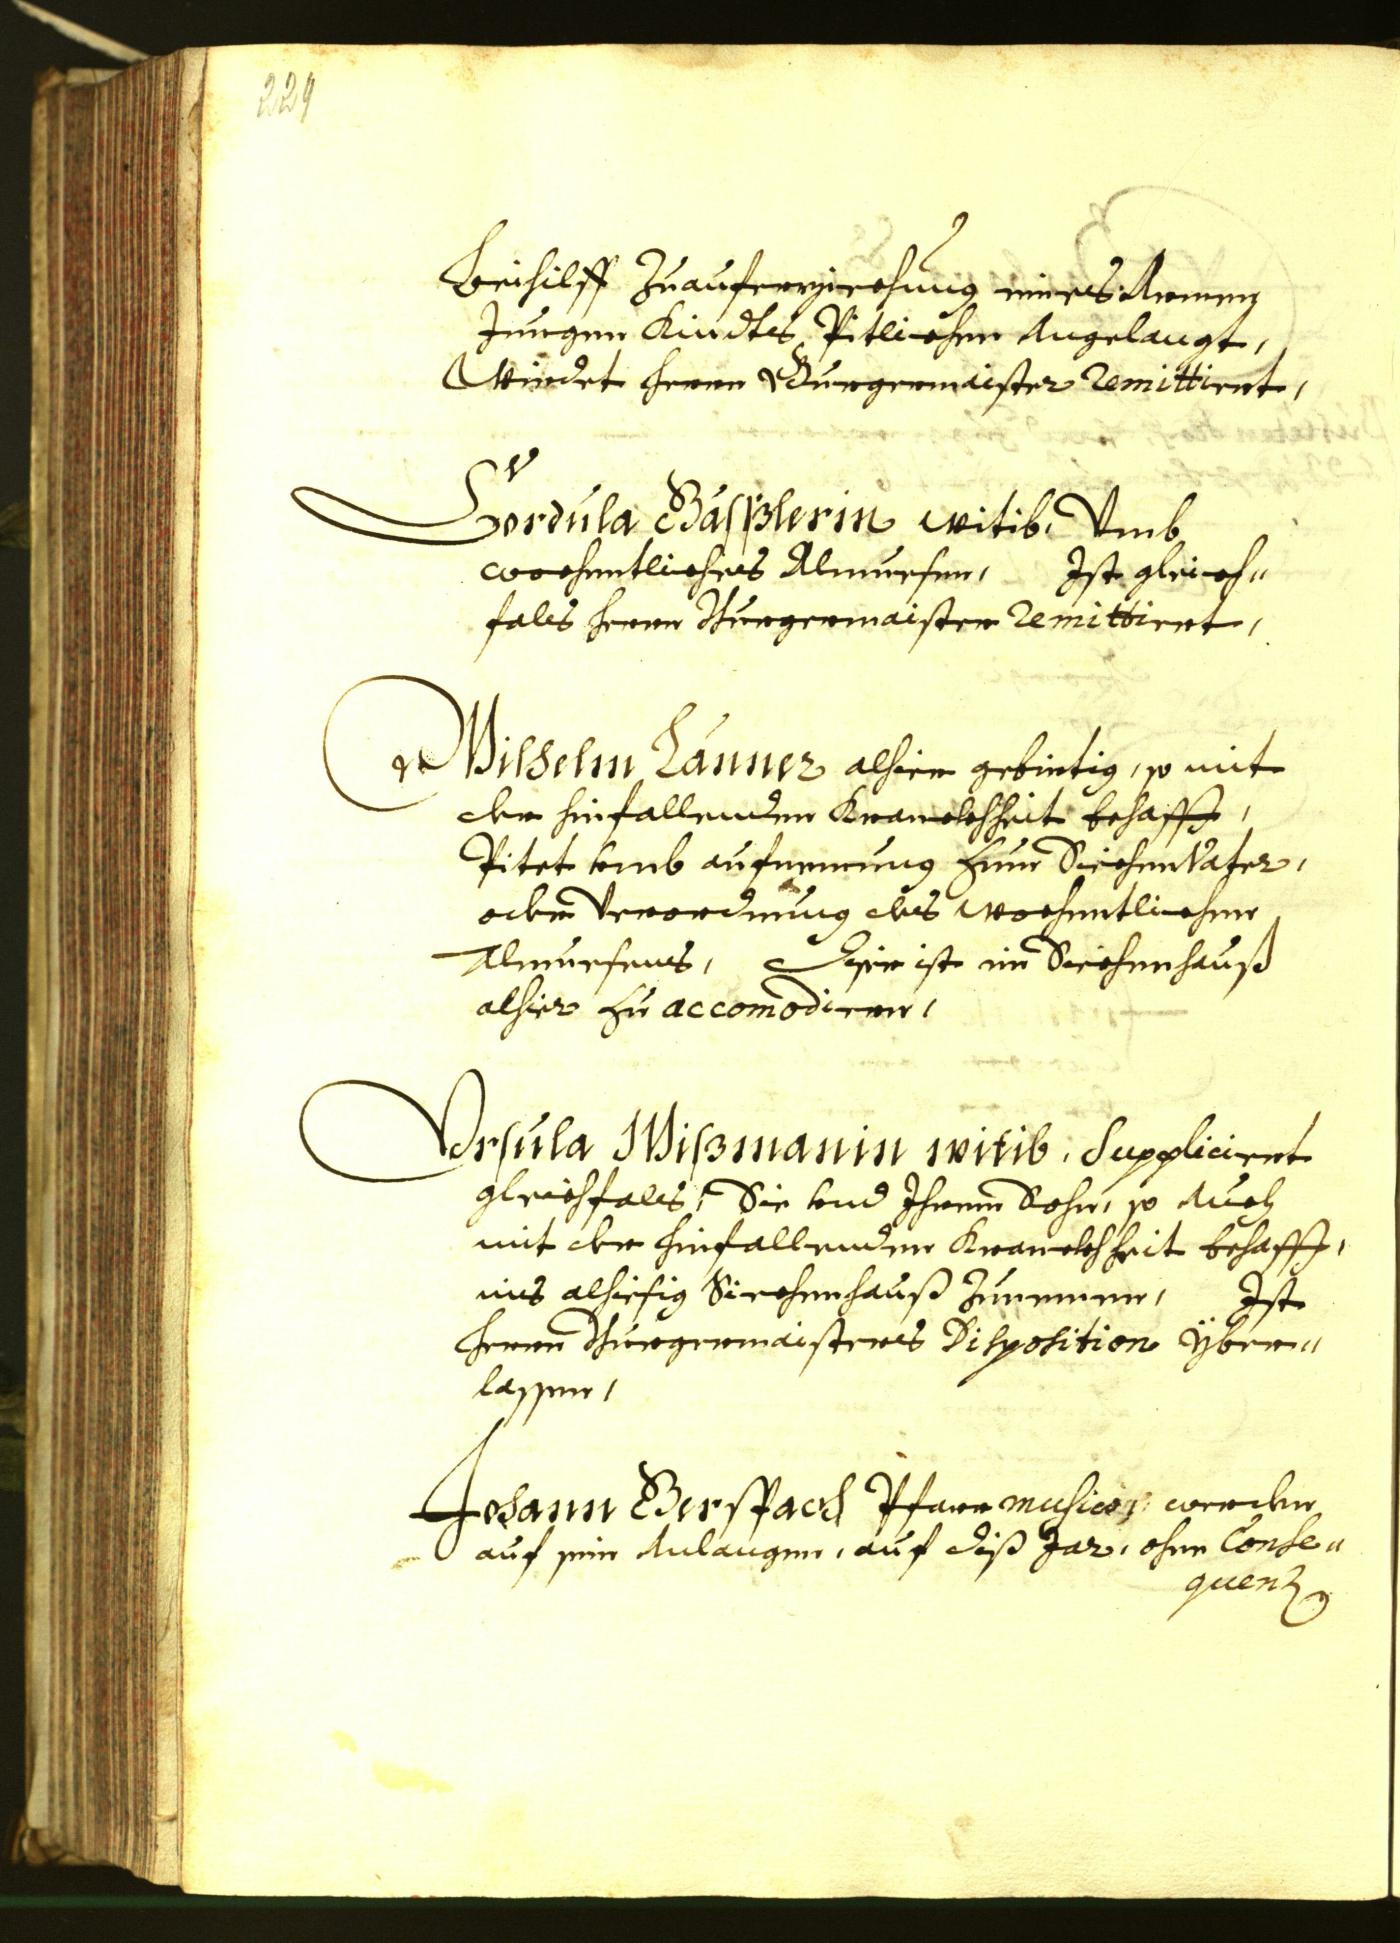 229
Beihilff Zuauferziechung eines Armen
Jungen Kindts Pitlichen Angelangt,
Wirdet herrn Burgermaister remittiert,
Cordula Bäßlerin witib, Vmb
wochentliches Almuesen, Ist gleich„
fals herrn Burgermaister remittiert,
Wilhelm Lanner alhier gebirtig, so mit
der hinfallenden Kranckhheit behafft,
Pitet vmb aufnemung Zum SiechenVater,
oder Verordnung des wochentlichen
Almuesens, Diser ist im Siechenhauß
alhier zu accomodieren,
Vrsula Wißmanin witib, Suppliciert
gleichfals, Sie vnd Ihrem Sohn, so Auch
mit der hinfallenden Kranckhheit behafft,
ins alhiesig Siechenhauß Zunemen, Ist
herrn Burgermaisters Disposition Yber„
lassen,
Johann Berspach Pfarr musico, werden
auf sein Anlangen, auf diß Jar, ohne Conse„
quenz